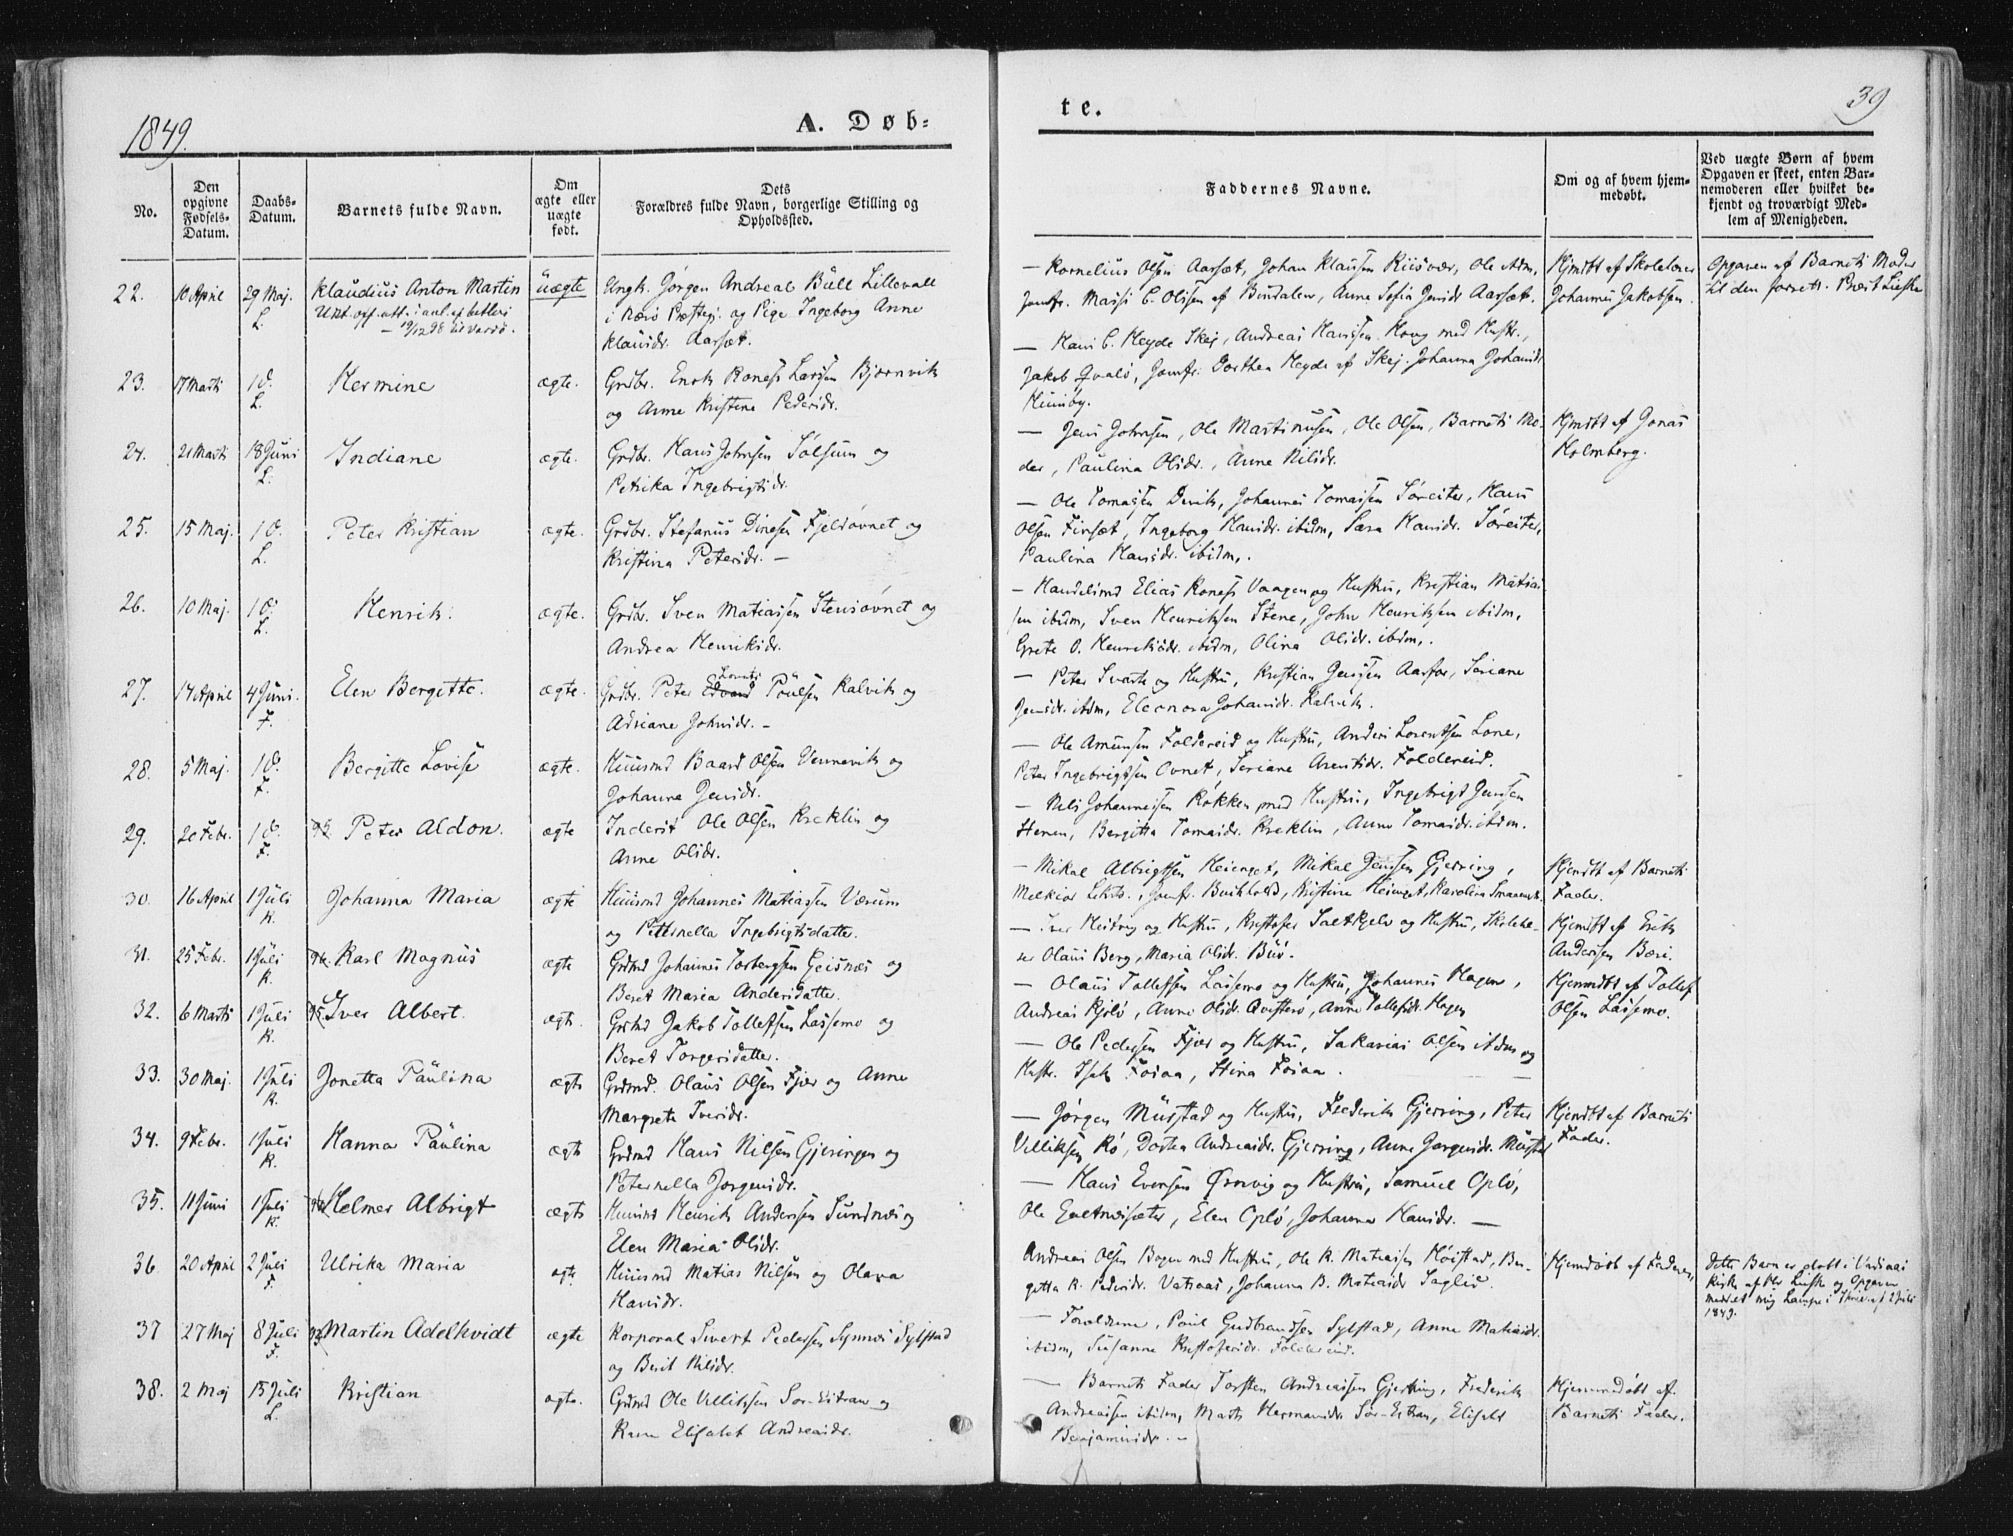 1849.
A. Døb-
te.
39
No.
Den opgivne Fødsels-Datum.
Daabs-Datum.
Barnets fulde Navn.
Om ægte eller uægte født.
Dets Forældres fulde Navn, borgerlige Stilling og Opholdssted.
Faddernes Navne.
Om og af hvem hjemmedøbt.
Ved uægte Børn af hvem Opgaven er skeet, enten Barnemoderen eller hvilket bekjendt og troværdigt Medlem af Menigheden.
22. 10 April 29 Maj. L. Klaudius Anton Martin uægte Ungk. Jørgen Andreas Bull Lillevall
i Nærø Præstegj. og Pige Ingeborg Anne
Klausdr. Aarsæt.
Kornelius Olsen Aarsæt, Johan Klausen Riisvær, Ole
Jomfr. Massi C. Olsen af Bindalen, Anne Sofia Aarsæt.
Hjmdbt af Skolelærer
Johannes Jakobsen
Opgaven af Barnets Moder
til den forrett. Præst
23. 17 Marts 1d. L. Hermine ægte. Grdbr. Enok Larsen Bjørnvik
og Anne Kristine Pedersdr.
Hans C. Heyde Skej, Andreas Hanssen Houg med Hustr.,
Jakob Qvalø, Jomfr. Dorthea Heyde af Skej. Johanna Johansdr
24. 21 Marts 18 Juni L. Indiane ægte. Grdbr. Hans Johnsen Solsum og
Petrika Ingebrigtsdr.
Jens Johnsen, Ole Martinusen, Ole Olsen, Barnets Mo-
der, Paulina Olsdr., Anne Nilsdr.
Hjmdbt af Jonas
Holmberg.
25. 15 Maj. 1d. L. Peter Kristian ægte. Grdbr. Stefanus Dinesen Fjeldovnet og
Kristina Petersdr. -
Ole Tomassen Devik, Johannes Tomassen Søreiter, Hans
Olsen Finsæt, Ingeborg Hansdr. ibidm, Sara Hansdr. Søreiter,
Paulina Hansdr. ibidm,.
26. 10 Maj. 1d. L. Henrik. ægte. Grdbr. Sven Matiassen Stensovnet og
Andrea Henriksdr.
Handelsmd Elias Vaagen og Hustru, Kristian Matias-
sen ibidm, Sven Henriksen Stene, John Henriksen ibidm,
Grete O. Henriksdr. ibidm, Olina Olsdr. ibidm,.
27. 17 April 4 Juni. F. Elen Bergitte. ægte. Grdbr. Peter Poulsen Kalvik og
Adriane Johnsdr. -
Peter Svarte og Hustru, Kristian Jenssen Aarfor, Seriane
Jensdr. ibdm, Eleonora Johansdr. Kalvik.
28. 5 Maj. 1d. F. Bergitte Lovise ægte. Huusmd Baard Olsen Vennevik og
Johanna Jensdr.
Ole Amunsen Foldereid og Hustru, Anders Lorentsen Lone,
Peter Ingebrigtsen Ovnet, Seriane Arentsdr. Foldereid.
29. 20 Febr. 1d. F. Peter Aldon. ægte Inderst Ole Olsen Kreklin og
Anne Olsdr.
Nils Johannesen Røkken med Hustru, Ingebrigt Jensen
Henen, Bergitta Tomasdr. Kreklin, Anne Tomasdr. ibdm.
30. 16 April 1 Juli K. Johanna Maria ægte Huusmd Johannes Matiassen Værum
og Petternella Ingebrigtsdatter.
Mikal Albrigtsen Heienget, Mikal Jenssen Gjerring,
Hjemdbt af Barnets
Fader.
31. 25 Febr. 1 Juli K. Karl Magnus ægte Grdmd Johannes Torbergsen Geisnæs og
Beret Maria Andersdatter.
Iver Heidvig og Hustru, Kristofer og Hustru, Skolelæ-
rer Olaus Berg, Maria Olsdr.
Hjemdbt af Erik
Andersen
32. 6 Marts 1 Juli K. Iver Albert. ægte. Grdmd Jakob Tollefsen Lassemo og
Beret Torgersdatter.
Olaus Tollefsen Lassemo og Hustru, Johannes Hagen,
Andreas Kjølø, Anne Olsdr. Anne Tollefsdr. Hagen
Hjemmdbt af Tollef
Olsen Lassemo.
33. 30 Maj. 1 Juli K. Jonetta Paulina ægte Grdmd. Olaus Olsen Fjær og Anne
Margrete Iversdr.
Ole Pedersen Fjær og Hustru, Sakarias Olsen ibdm og
Hustr. Isak Fosaa, Stina Fosaa.
34. 9 Febr. 1 Juli K. Hanna Paulina ægte Grdmd Hans Nilsen Gjeringen og
Peternella Jørgensdr.
Jørgen Musstad og Hustru, Frederik Gjerring, Peter
Villiksen Rø, Dortea Andreasdr. Gjerring, Anne Jørgensdr. Musstad
Hjemdbt af Barnets
Fader.
35. 11 Juni 1 Juli K. Helmer Albrigt ægte Huusmd Henrik Andersen Sundnæs og
Elen Maria Olsdr.
Hans Evensen Ørsvig og Hustru, Samuel Oplø,
Ole, Elen Oplø, Johanna Hansdr.
36 20 April 2 Juli F. Ulrika Maria ægte Huusmd Matias Nilsen og Olava
Hansdr.
Andreas Olsen Bogen med Hustru, Ole K. Matiassen Høistad, Ber-
getta K. Pedersdr. Vatnaas, Johanna B. Matiasdr Saglid.
Hjemdøbt af Faderen,
Dette Barn er døbt i
Kirke af Hr. og Opgaven
meddelt mig af 2 Juli
1849.
37 27 Maj 8 Juli F. Martin Adelhvidt ægte Korporal Sivert Pedersen Sylstad
og Berit Nilsdr.
Forældrene, Poul Gudbrandsen Sylstad, Anne Matiasdr.
ibidm, Susanne Kristofersdr. Foldereid.
38. 2 Maj 15 Juli L. Kristian ægte. Grdmd Ole Villiksen Sør-Eitran og
Elisabet Andreasdr.
Barnets Fader Torsten Andreassen Gjerring, Frederik
Andreassen ibidm, Marth Hermansdr. Sør-Eitran, Elisabt
Benjaminsdr.
Hjemmedøbt af
Barnets Fader.